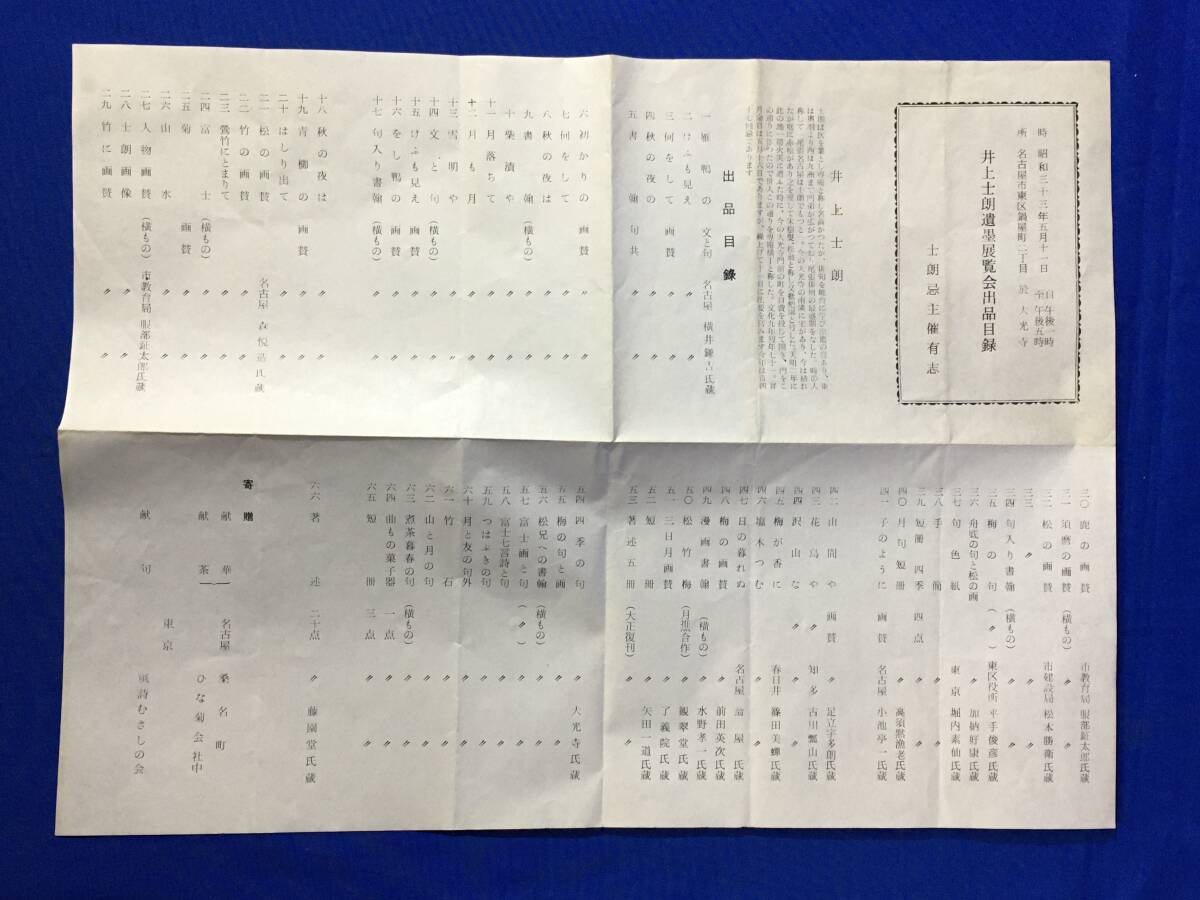 時 昭和三十三年五月十一日 自午後一時 至午後五時
所 名古屋市東区鍋屋町二丁目 於大光寺
井上士朗遺墨展覧会出品目録
士朗忌主催有志
井上士朗
出品目錄
一 雁鴨の 文と句 名古屋 横井鎌吉氏蔵
二 けふも見え 〃 〃
三 何をして 画賛 〃 〃
四 秋の夜の 〃 〃
五 書翰 句共 〃 〃
六 初かりの 画賛 〃 〃
七 何をして 〃 〃
八 秋の夜は 〃 〃
九 書翰 (横もの) 〃 〃
十 柴漬や 〃 〃
十一 月落ちて 〃 〃
十二 月も月 〃 〃
十三 雪明や 〃 〃
十四 文と句 (横もの) 〃 〃
十五 けふも見え 画賛 〃 〃
十六 をし鴨の 画賛 〃 〃
十七 句入り書翰 (横もの) 〃 〃
十八 秋の夜は 〃 〃
十九 青柳の 画賛 〃 〃
二十 はしり出て 〃 〃
二一 松の画賛 名古屋 森悦造氏蔵
二二 竹の画賛 〃 〃
二三 鶯竹にとまりて 〃 〃
二四 富士 (横もの) 〃 〃
二五 菊 画賛 〃 〃
二六 山水 〃 〃
二七 人物画賛 (横もの) 市教育局 服部鉦太郎氏蔵
二八 士朗画像 〃 〃
二九 竹に画賛 〃 〃
三〇 鹿の画賛 市教育局 服部鉦太郎氏蔵
三一 須磨の画賛 (横もの) 〃 〃
三二 松の画賛 市建設局 松本勝衛氏蔵
三三 〃 〃 〃
三四 句入り書翰 (横もの) 〃 〃
三五 梅の句 (〃) 東区役所 平手俊彦氏蔵
三六 角底の句と松の画 〃 加納好康氏蔵
三七 句色紙 東京 堀内素仙氏蔵
三八 手簡 〃 〃
三九 短冊 四季 四点 〃 〃
四〇 月句短冊 〃 高須黙漁老氏蔵
四一 子のように 画賛 名古屋 小池亭一氏蔵
四二 山間や 画賛 〃 足立宇多朗氏蔵
四三 花鳥や 〃 知多 古川瓢山氏蔵
四四 沢山な 〃 〃 〃
四五 梅が香に 春日井 篠田美蟬氏蔵
四六 塩木つむ 〃 〃
四七 日の暮れぬ 名古屋 蔀屋氏蔵
四八 梅の画賛 〃 前田英次氏蔵
四九 漫画書翰 (横もの) 〃 水野孝一氏蔵
五〇 松竹梅 (月樵合作) 〃 観翠堂氏蔵
五一 三日月画賛 〃 了義院氏蔵
五二 短冊 〃 矢田一道氏蔵
五三 著述 五冊 (大正復刊) 〃 〃
五四 四季の句 〃 大光寺氏蔵
五五 梅の句と画 〃 〃
五六 松兄への書翰 (横もの) 〃 〃
五七 富士画と句 (〃) 〃 〃
五八 富士七言詩と句 〃 〃
五九 つはぶきの句 〃 〃
六十 月と友の句外 〃 〃
六一 竹石 〃 〃
六二 山と月の句 〃 〃
六三 煮茶暮春の句 (横もの) 〃 〃
六四 曲もの菓子器 一点 〃 〃
六五 短冊 三点 〃 〃
六六 著述 二十点 〃 藤園堂氏蔵
寄贈
献華 名古屋 桑名町
献茶 ひな菊会社中
献句 東京 風詩むさしの会